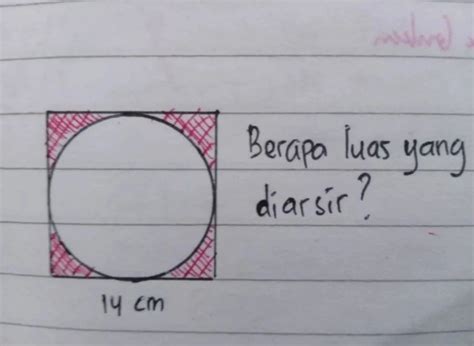 Berapa luas yang
diarsir?
14 cm